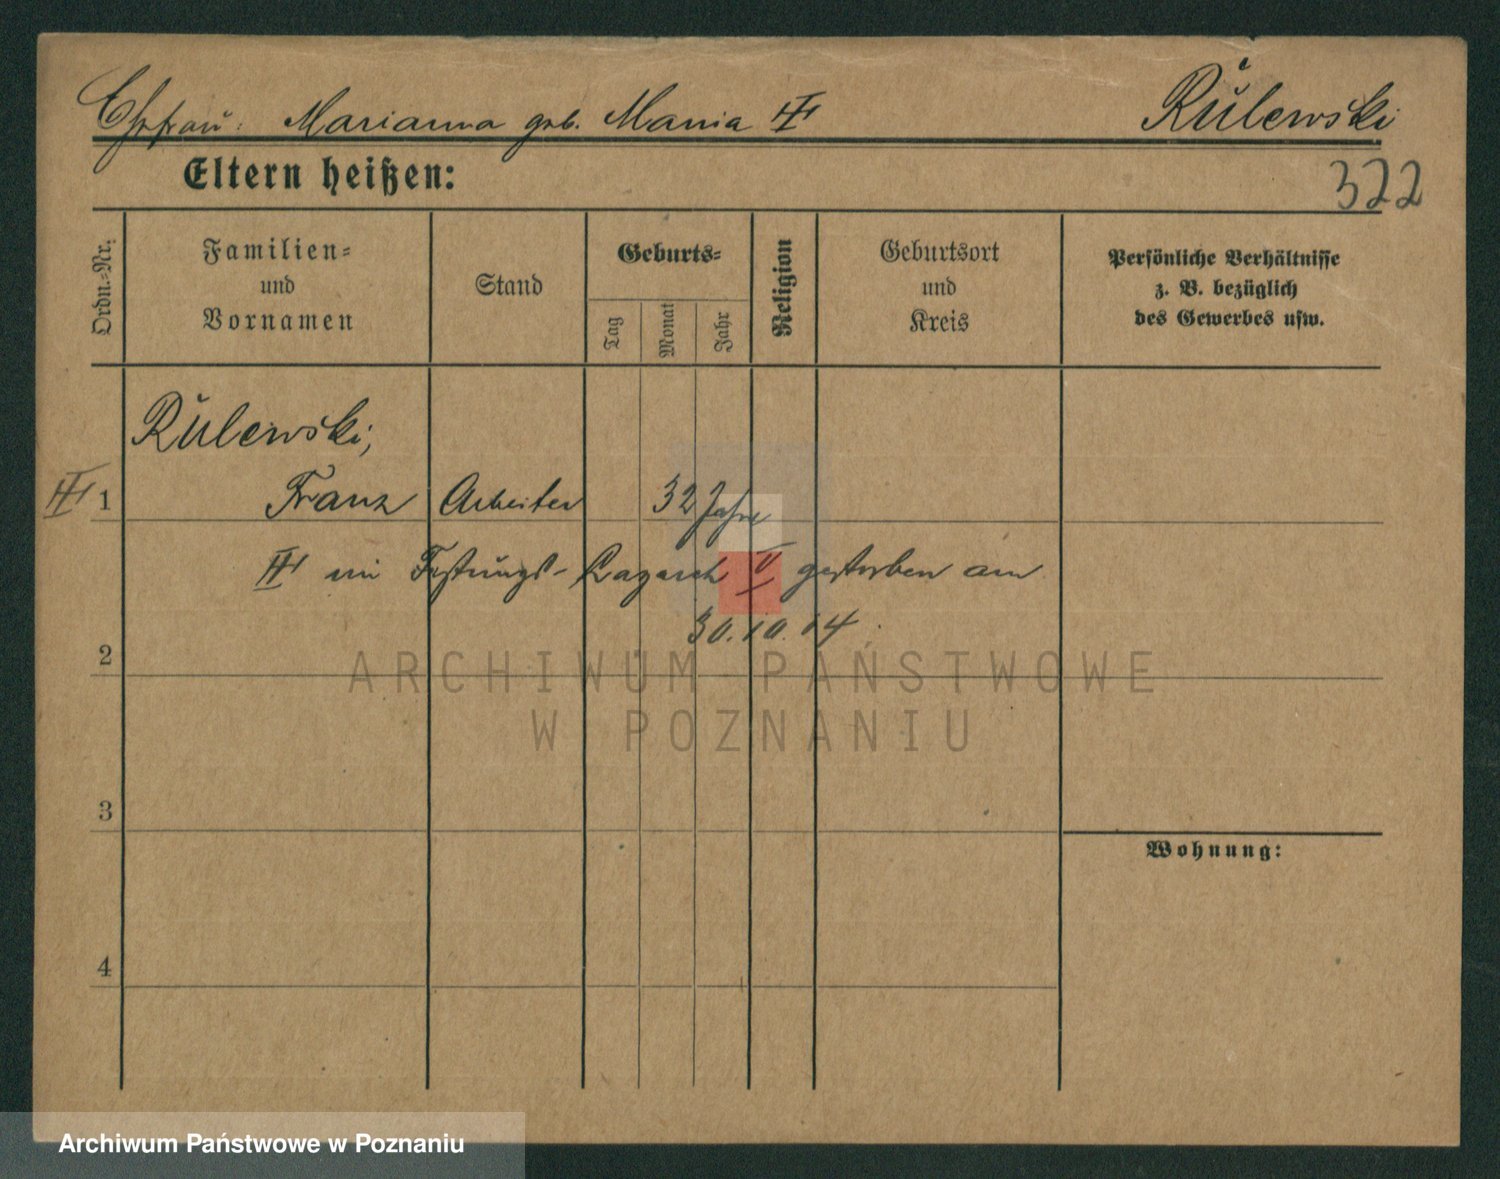 Ehefrau: Marianna geb. Mania Rulewski
Eltern heißen:
322
Ordn.-Nr.
Familien-
und
Vornamen
Stand
Geburts-
Tag
Monat
Jahr
Religion
Geburtsort
und
Kreis
Persönliche Verhältnisse
z. B. bezüglich
des Gewerbes usw.
Rulewski,
1 Franz Arbeiter 32 Jahre
im Festungs-Lazareth V gestorben am
30.10.14.
2
ARCHIWUM PAŃSTWOWE
W POZNANIU
3
Wohnung:
4
Archiwum Państwowe w Poznaniu